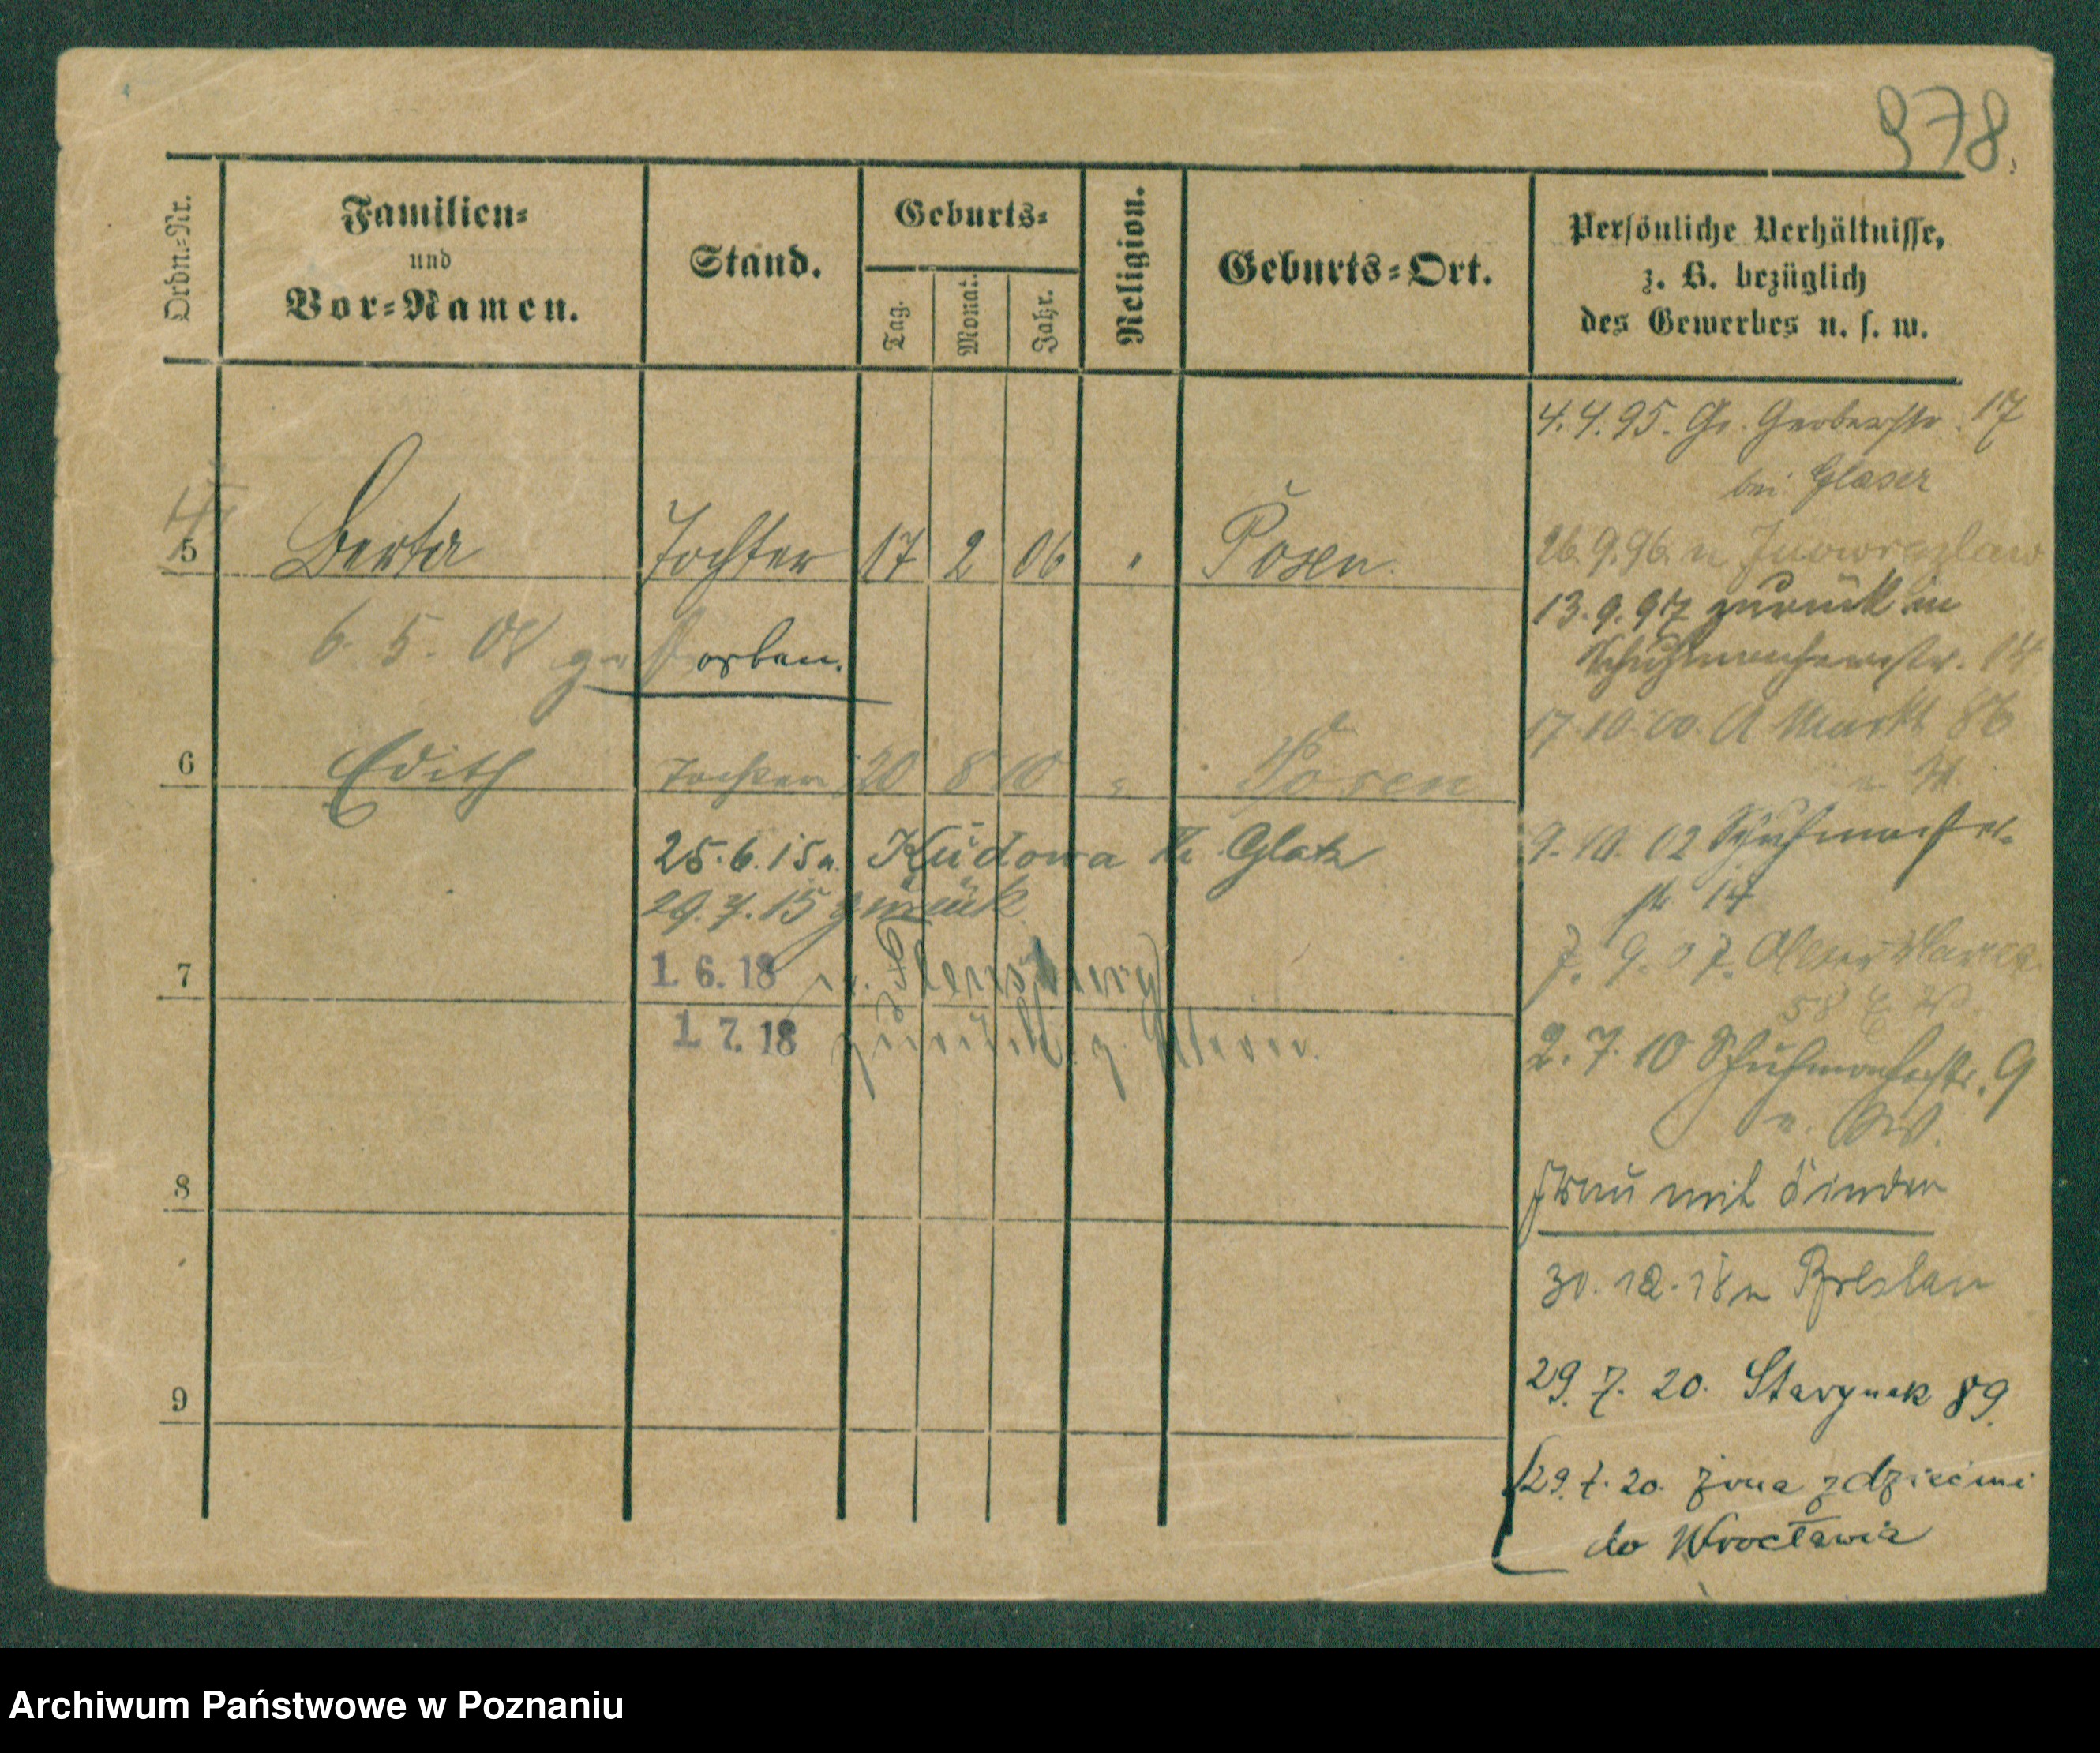 978.
Ordn.=Nr.
Familien=
und
Vor=Namen.
Stand.
Geburts=
Tag.
Monat.
Jahr.
Religion.
Geburts=Ort.
Persönliche Verhältnisse,
z. B. bezüglich
des Gewerbes u. s. w.
4. 4. 95. Gr. Gerberstr. 17
bei Glaser
5 Berta Tochter 17 2 06 " Posen.
26. 9. 96. n Inowrazlaw
13. 9. 97 zurück in
Schuhmacherstr. 14
6. 5. 08 gestorben.
17. 10. 00. A Markt 86
6 Edith Tochter 20 8 10 " Posen
9. 10. 02 Schuhmacher
str 14
25. 6. 15 n. Kudowa Kr. Glatz
29. 7. 15 zurück
7. 9. 07. Alter Markt
58
7
1. 6. 18 n. Flensburg
1. 7. 18 zurück z. Eltern.
2. 7. 10 Schuhmacherstr. 9
8
Frau mit Kinder
30. 12. 18 n Breslau
9
29. 7. 20. St. Rynek 89.
29. 7. 20. żona z dziećmi
do Wrocławia
Archiwum Państwowe w Poznaniu